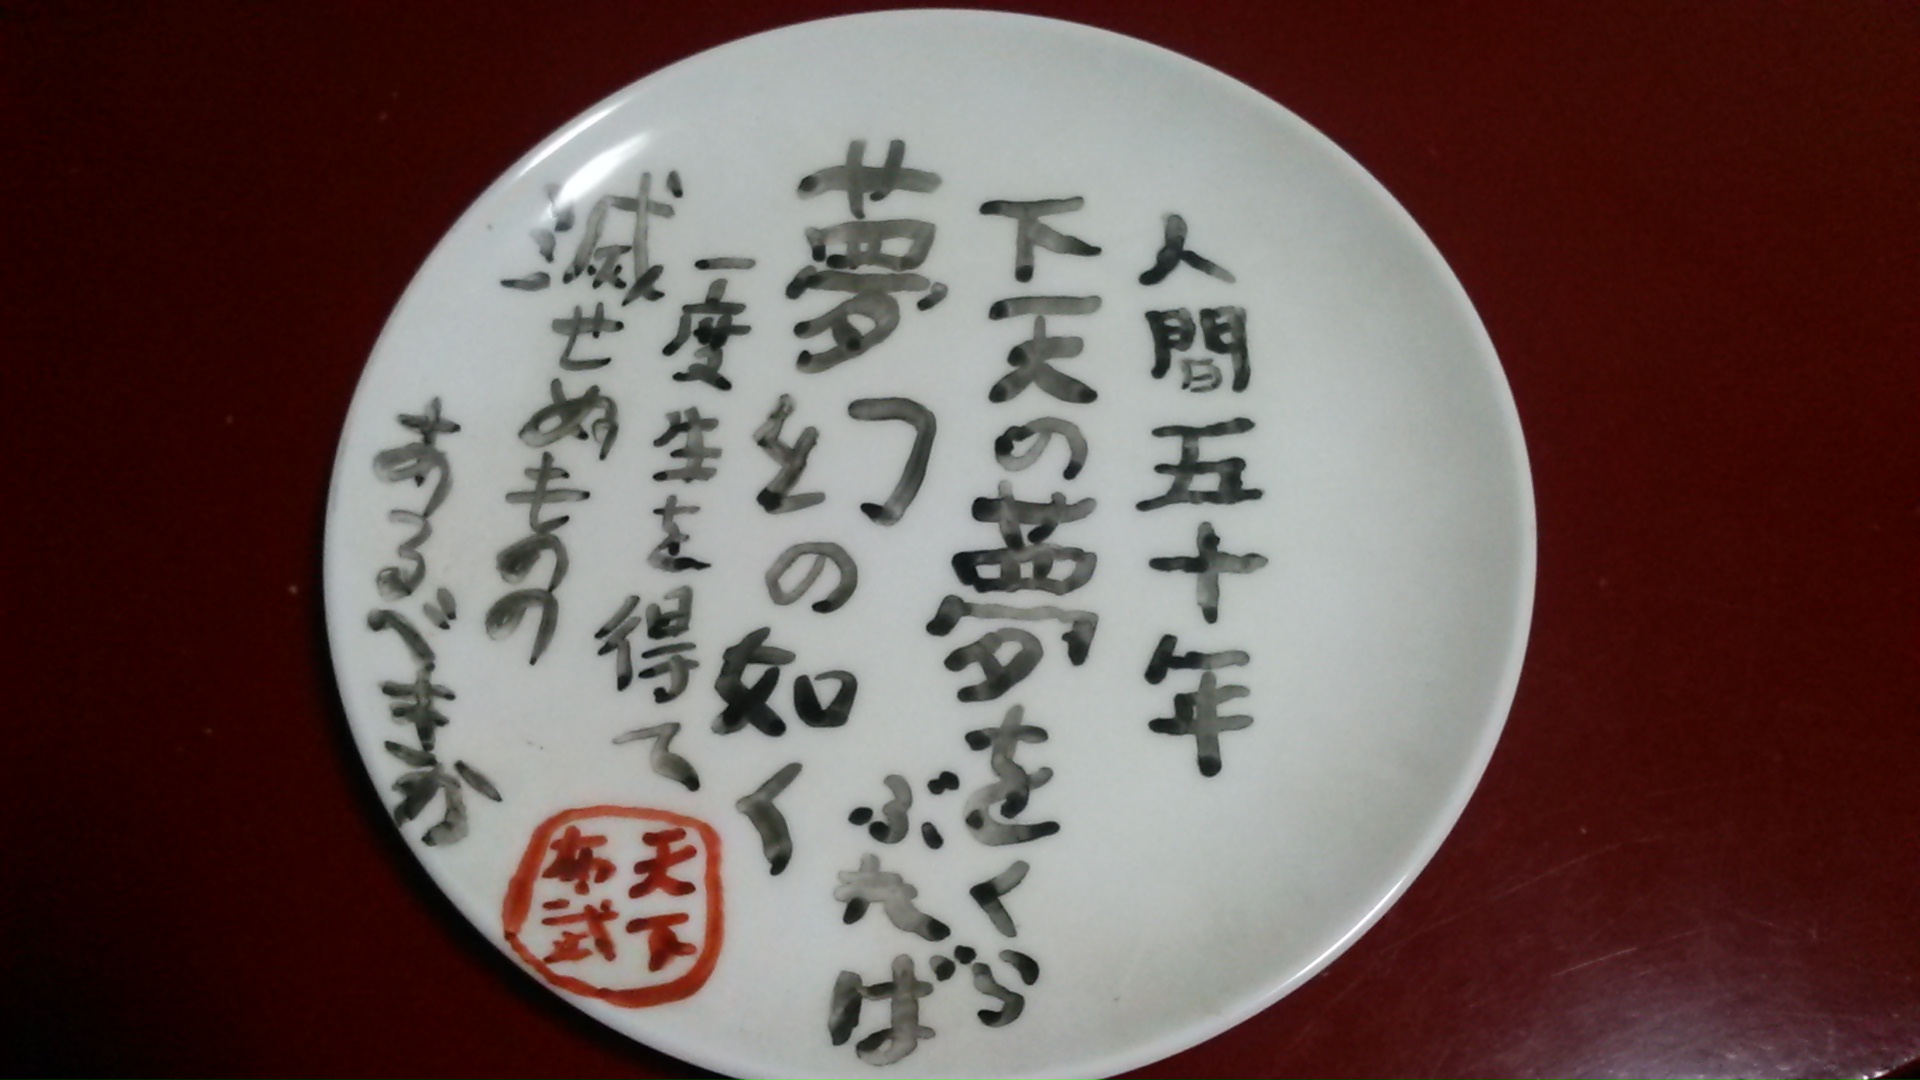 人間五十年
下天の夢をくら
ぶれば
夢幻の如く
一度生を得て
滅せぬものの
あるべきか
天下
布武